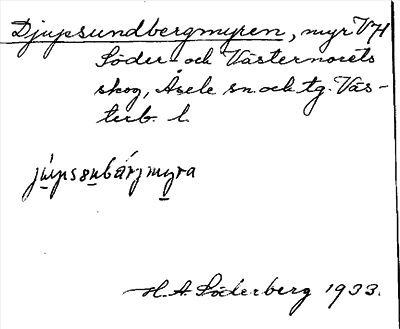 Djupsundbergmyren, myr VH
Söder- och Västernorets
skog, Åsele sn. och tg. Väs-
terb. l.
júpssnbárjmyra
H. A. Söderberg 1933.